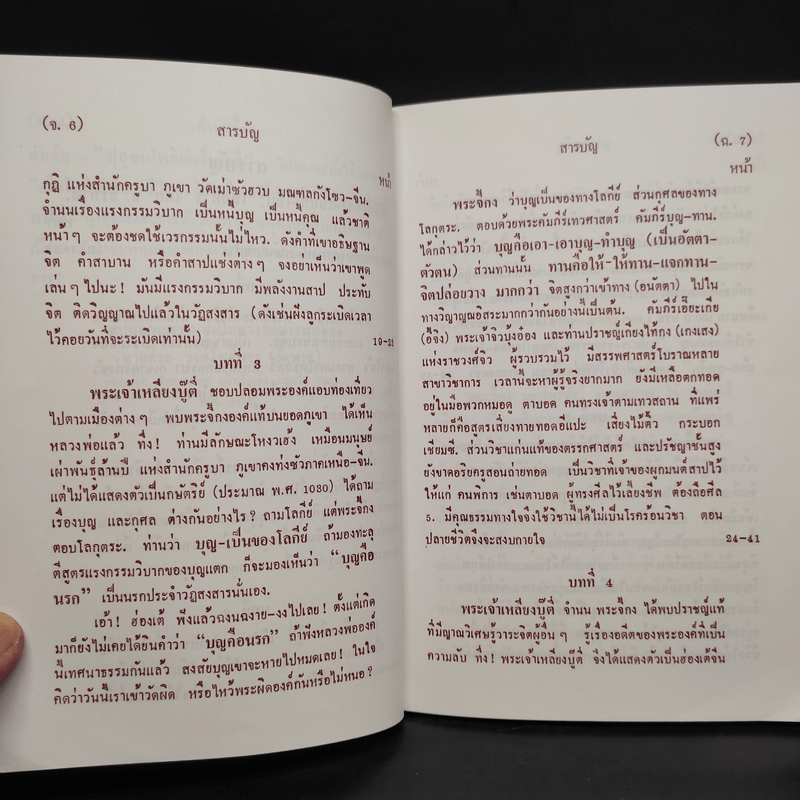 (จ. 6)
สารบัญ
หน้า
กุฏิ แห่งสำนักครูบา ภูเขา วัดเม่าซัวฮวบ มณฑลกังโซว-จีน.
จำนนเรื่องแรงกรรมวิบาก เป็นหนี้บุญ เป็นหนี้คุณ แล้วชาติ
หน้าๆ จะต้องชดใช้เวรกรรมนั้นไม่ไหว. ดังคำที่เขาอธิษฐาน
จิต คำสาบาน หรือคำสาปแช่งต่างๆ จงอย่าเห็นว่าเขาพูด
เล่นๆ ไปนะ! มันมีแรงกรรมวิบาก มีพลังงานสาป ประทับ
จิต ติดวิญญาณไปแล้วในวัฏสงสาร (ดังเช่นฝังลูกระเบิดเวลา
ไว้คอยวันที่จะระเบิดเท่านั้น)
19-23
บทที่ 3
พระเจ้าเหลียงบู๊ตี่ ชอบปลอมพระองค์แอบท่องเที่ยว
ไปตามเมืองต่างๆ พบพระจี้กงองค์แท้บนยอดภูเขา ได้เห็น
หลวงพ่อแล้ว ทึ่ง! ท่านมีลักษณะโหงวเฮ้ง เหมือนมนุษย์
เผ่าพันธุ์ล้านปี แห่งสำนักครูบา ภูเขาคงท่งซัวภาคเหนือ-จีน.
แต่ไม่ได้แสดงตัวเป็นกษัตริย์ (ประมาณ พ.ศ. 1080) ได้ถาม
เรื่องบุญ และกุศล ต่างกันอย่างไร? ถามโลกีย์ แต่พระจี้กง
ตอบโลกุตระ. ท่านว่า บุญ-เป็นของโลกีย์ ถ้ามองทะลุ
ตีสูตรแรงกรรมวิบากของบุญแตก ก็จะมองเห็นว่า “บุญคือ
นรก” เป็นนรกประจำวัฏสงสารนั่นเอง.
เอ้า! ฮ่องเต้ ฟังแล้วฉงนฉงาย-งงไปเลย! ตั้งแต่เกิด
มาก็ยังไม่เคยได้ยินคำว่า “บุญคือนรก” ถ้าฟังหลวงพ่อองค์
นี้เทศนาธรรมกันแล้ว สงสัยบุญเขาจะหายไปหมดเลย! ในใจ
คิดว่าวันนี้เราเข้าวัดผิด หรือไหว้พระผิดองค์กันหรือไม่หนอ?
สารบัญ
(ฉ. 7)
หน้า
พระจี้กง ว่าบุญเป็นของทางโลกีย์ ส่วนกุศลของทาง
โลกุตระ. ตอบด้วยพระคัมภีร์เทวศาสตร์ คัมภีร์บุญ-ทาน.
ได้กล่าวไว้ว่า บุญคือเอา-เอาบุญ-ทำบุญ (เป็นอัตตา-
ตัวตน) ส่วนทานนั้น ทานคือให้-ให้ทาน-แจกทาน-
จิตปล่อยวาง มากกว่า จิตสูงกว่าเข้าทาง (อนัตตา) ไปใน
ทางวิญญาณอิสระมากกว่ากันอย่างนี้เป็นต้น. คัมภีร์เอี๊ยะเกีย
(อี้จิง) พระเจ้าจิวบุ้งอ๋อง และท่านปราชญ์เกียงไท้กง (เกงเสง)
แห่งราชวงศ์จิว ผู้รวบรวมไว้ มีสรรพศาสตร์โบราณหลาย
สาขาวิชาการ เวลานี้จะหาผู้รู้จริงยากมาก ยังมีเหลือตกทอด
อยู่ในมือพวกหมอดู ตาบอด คนทรงเจ้าตามเทวสถาน ที่แพร่
หลายก็คือสูตรเสี่ยงทายทอดอี่แปะ เสี่ยงไม้ติ้ว กระบอก
เซียมซี. ส่วนวิชาแก่นแท้ของตรรกศาสตร์ และปรัชญาชั้นสูง
ยังขาดอริยครูสอนถ่ายทอด เป็นวิชาที่เจ้าของผูกมนต์สาปไว้
ให้แก่ คนพิการ เช่นตาบอด ผู้ทรงศีลไว้เลี้ยงชีพ ต้องถือศีล
5. มีคุณธรรมทางใจจึงใช้วิชานี้ได้ไม่เป็นโรคร้อนวิชา ตอน
ปลายชีวิตจึงจะสงบกายใจ
24-41
บทที่ 4
พระเจ้าเหลียงบู๊ตี่ จำนน พระจี้กง ได้พบปราชญ์แท้
ที่มีญาณวิเศษรู้วาระจิตผู้อื่นๆ รู้เรื่องอดีตของพระองค์ที่เป็น
ความลับ ทึ่ง! พระเจ้าเหลียงบู๊ตี่ จึงได้แสดงตัวเป็นฮ่องเต้จีน